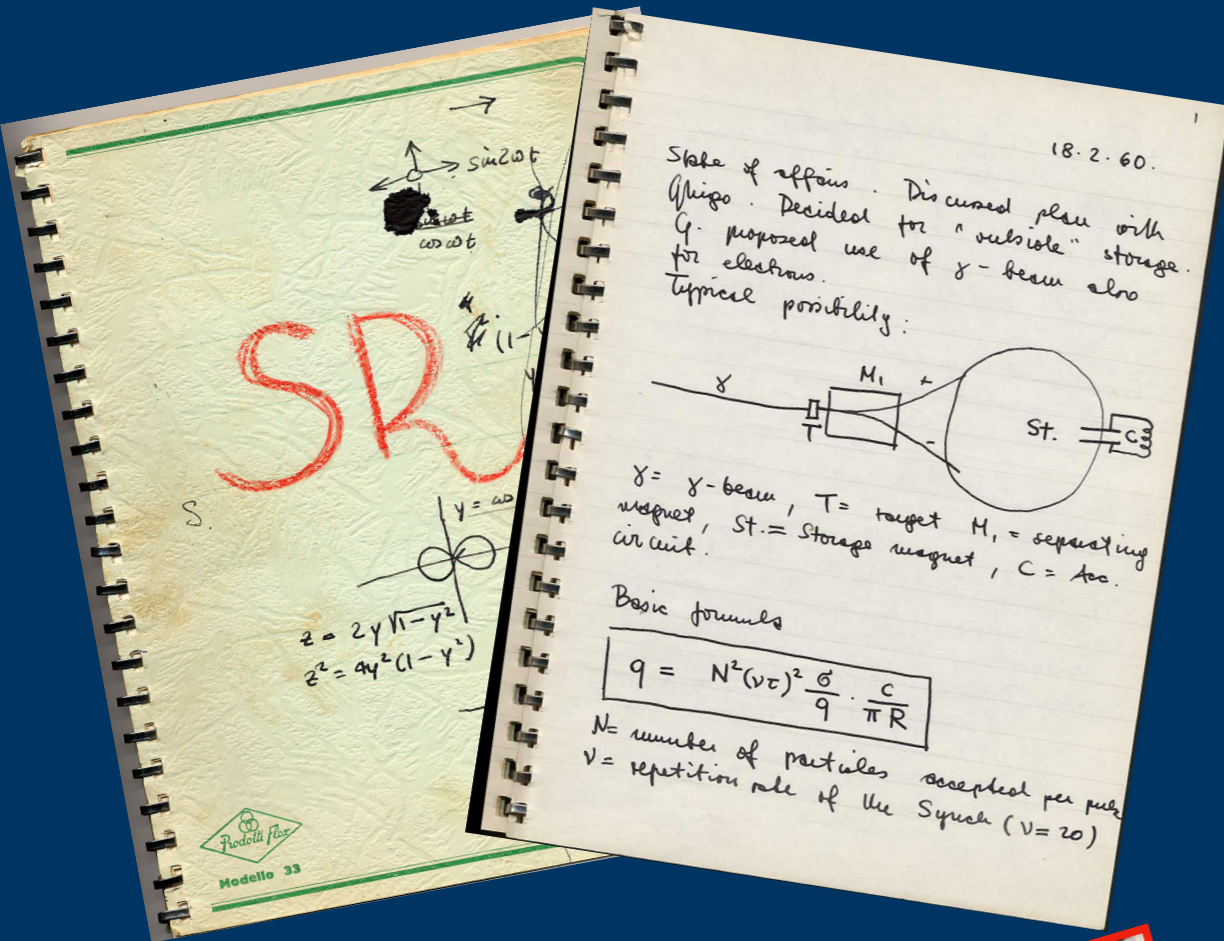 sin2ωt
cosωt
(1-
SR
S.
y = cos
z = 2y√1-y²
z² = 4y²(1-y²)
Prodotti Flex
Modello 33
1
18.2.60.
State of affairs. Discussed plan with
Ghigo. Decided for "outside" storage.
G. proposed use of γ-beam also
for electrons.
Typical possibility:
γ
T
M₁
+
-
St.
C
γ = γ-beam, T = target M₁ = separating
magnet, St. = Storage magnet, C = Acc.
circuit.
Basic formula
q = N²(ντ)² σ/q · c/πR
N= number of particles accepted per pulse
ν = repetition rate of the Synch (ν=20)